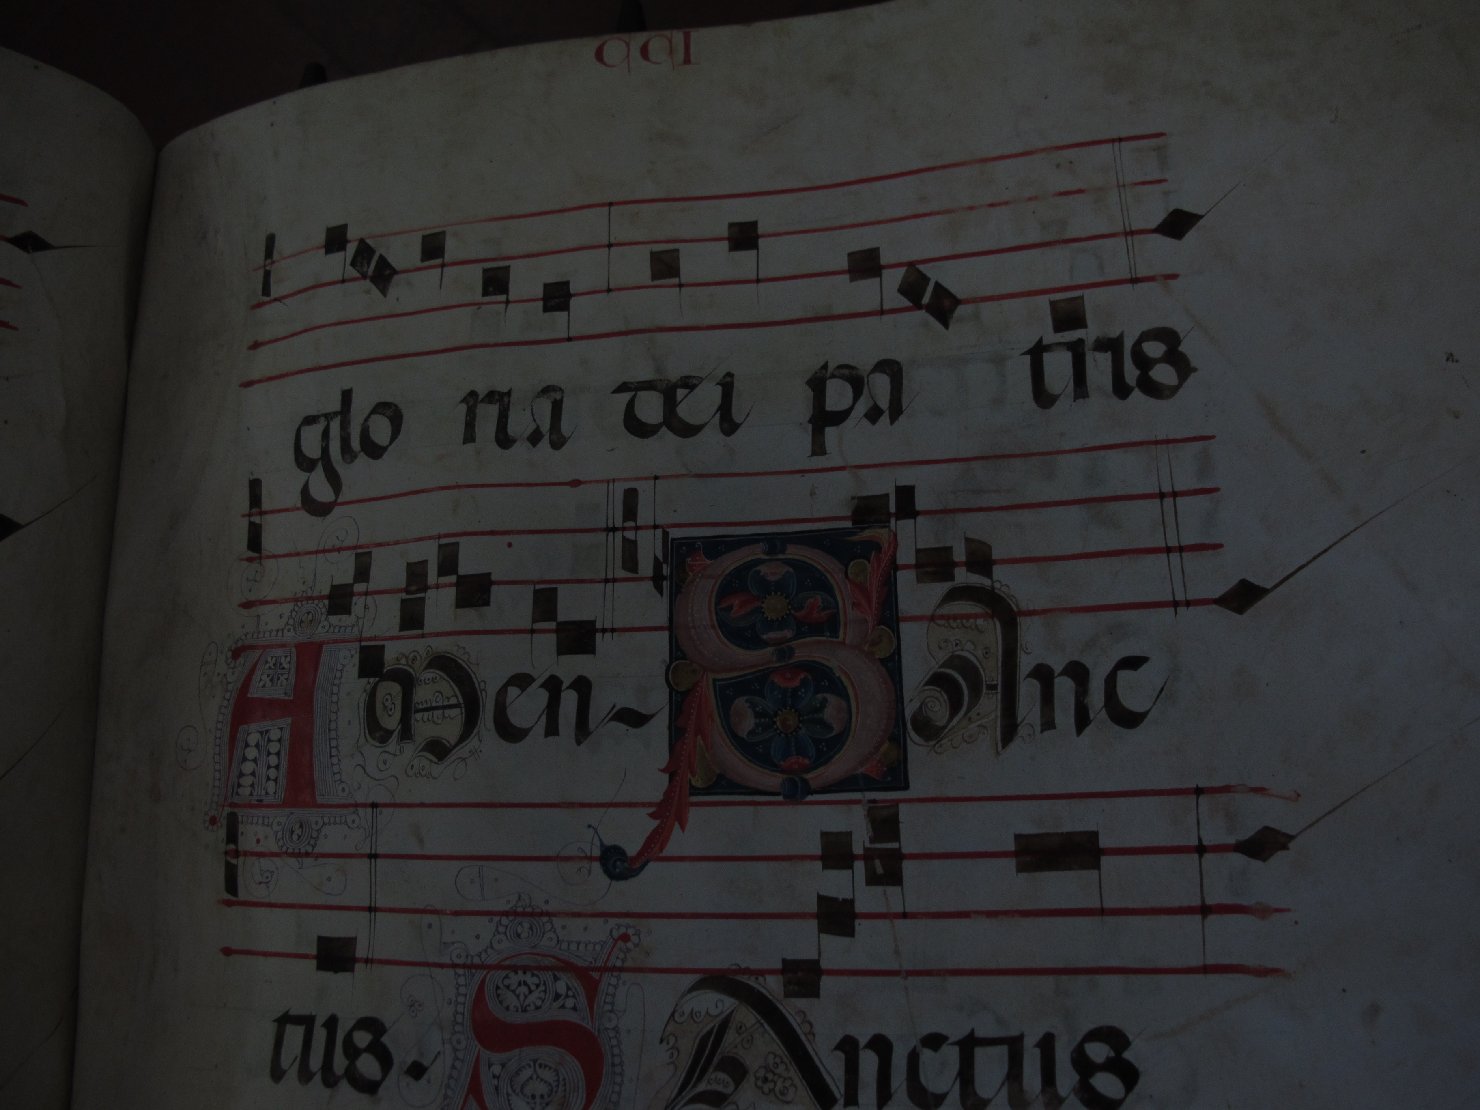 CCI
glo ria dei pa tris
Amen- Sanc
tus- Sanctus